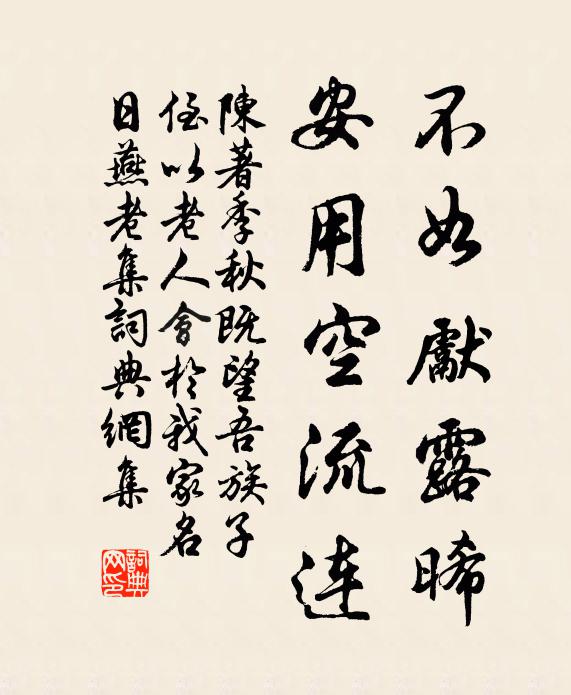 不如獻露晞
安用空流連
陳著季秋既望吾族子
侄以老人會於我家名
日燕老集詞典網集
詞典网印